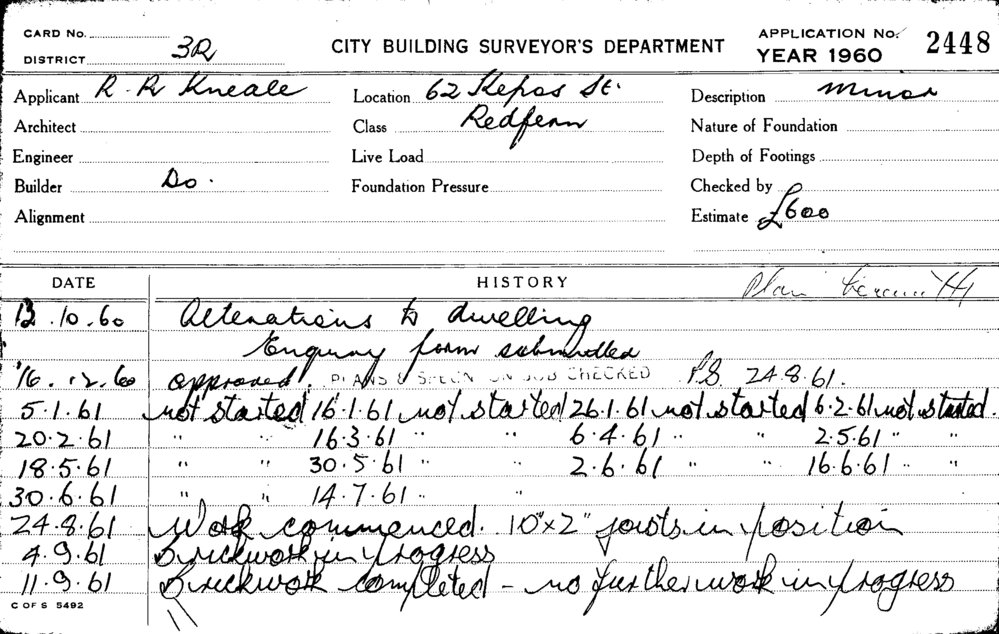 CARD No.
DISTRICT 3R
CITY BUILDING SURVEYOR'S DEPARTMENT
APPLICATION No. 2448
YEAR 1960
Applicant R. R Kneale
Location 62 Kepos St.
Description minor
Architect
Class Redfern
Nature of Foundation
Engineer
Live Load
Depth of Footings
Builder Do.
Foundation Pressure
Checked by
Alignment
Estimate £600
DATE HISTORY Plan
12.10.60 Alterations to dwelling
Enquiry form submitted
16.12.60 approved. PLANS & SPECN ON JOB CHECKED P.S. 24.8.61.
5.1.61 not started 16.1.61 not started 26.1.61 not started 6.2.61 not started.
20.2.61 " " 16.3.61 " " 6.4.61 " " 2.5.61 " "
18.5.61 " " 30.5.61 " " 2.6.61 " " 16.6.61 " "
30.6.61 " " 14.7.61 " "
24.8.61 Work commenced. 10"x2" joists in position
4.9.61 Brickwork in progress
11.9.61 Brickwork completed - no further work in progress
C OF S 5492